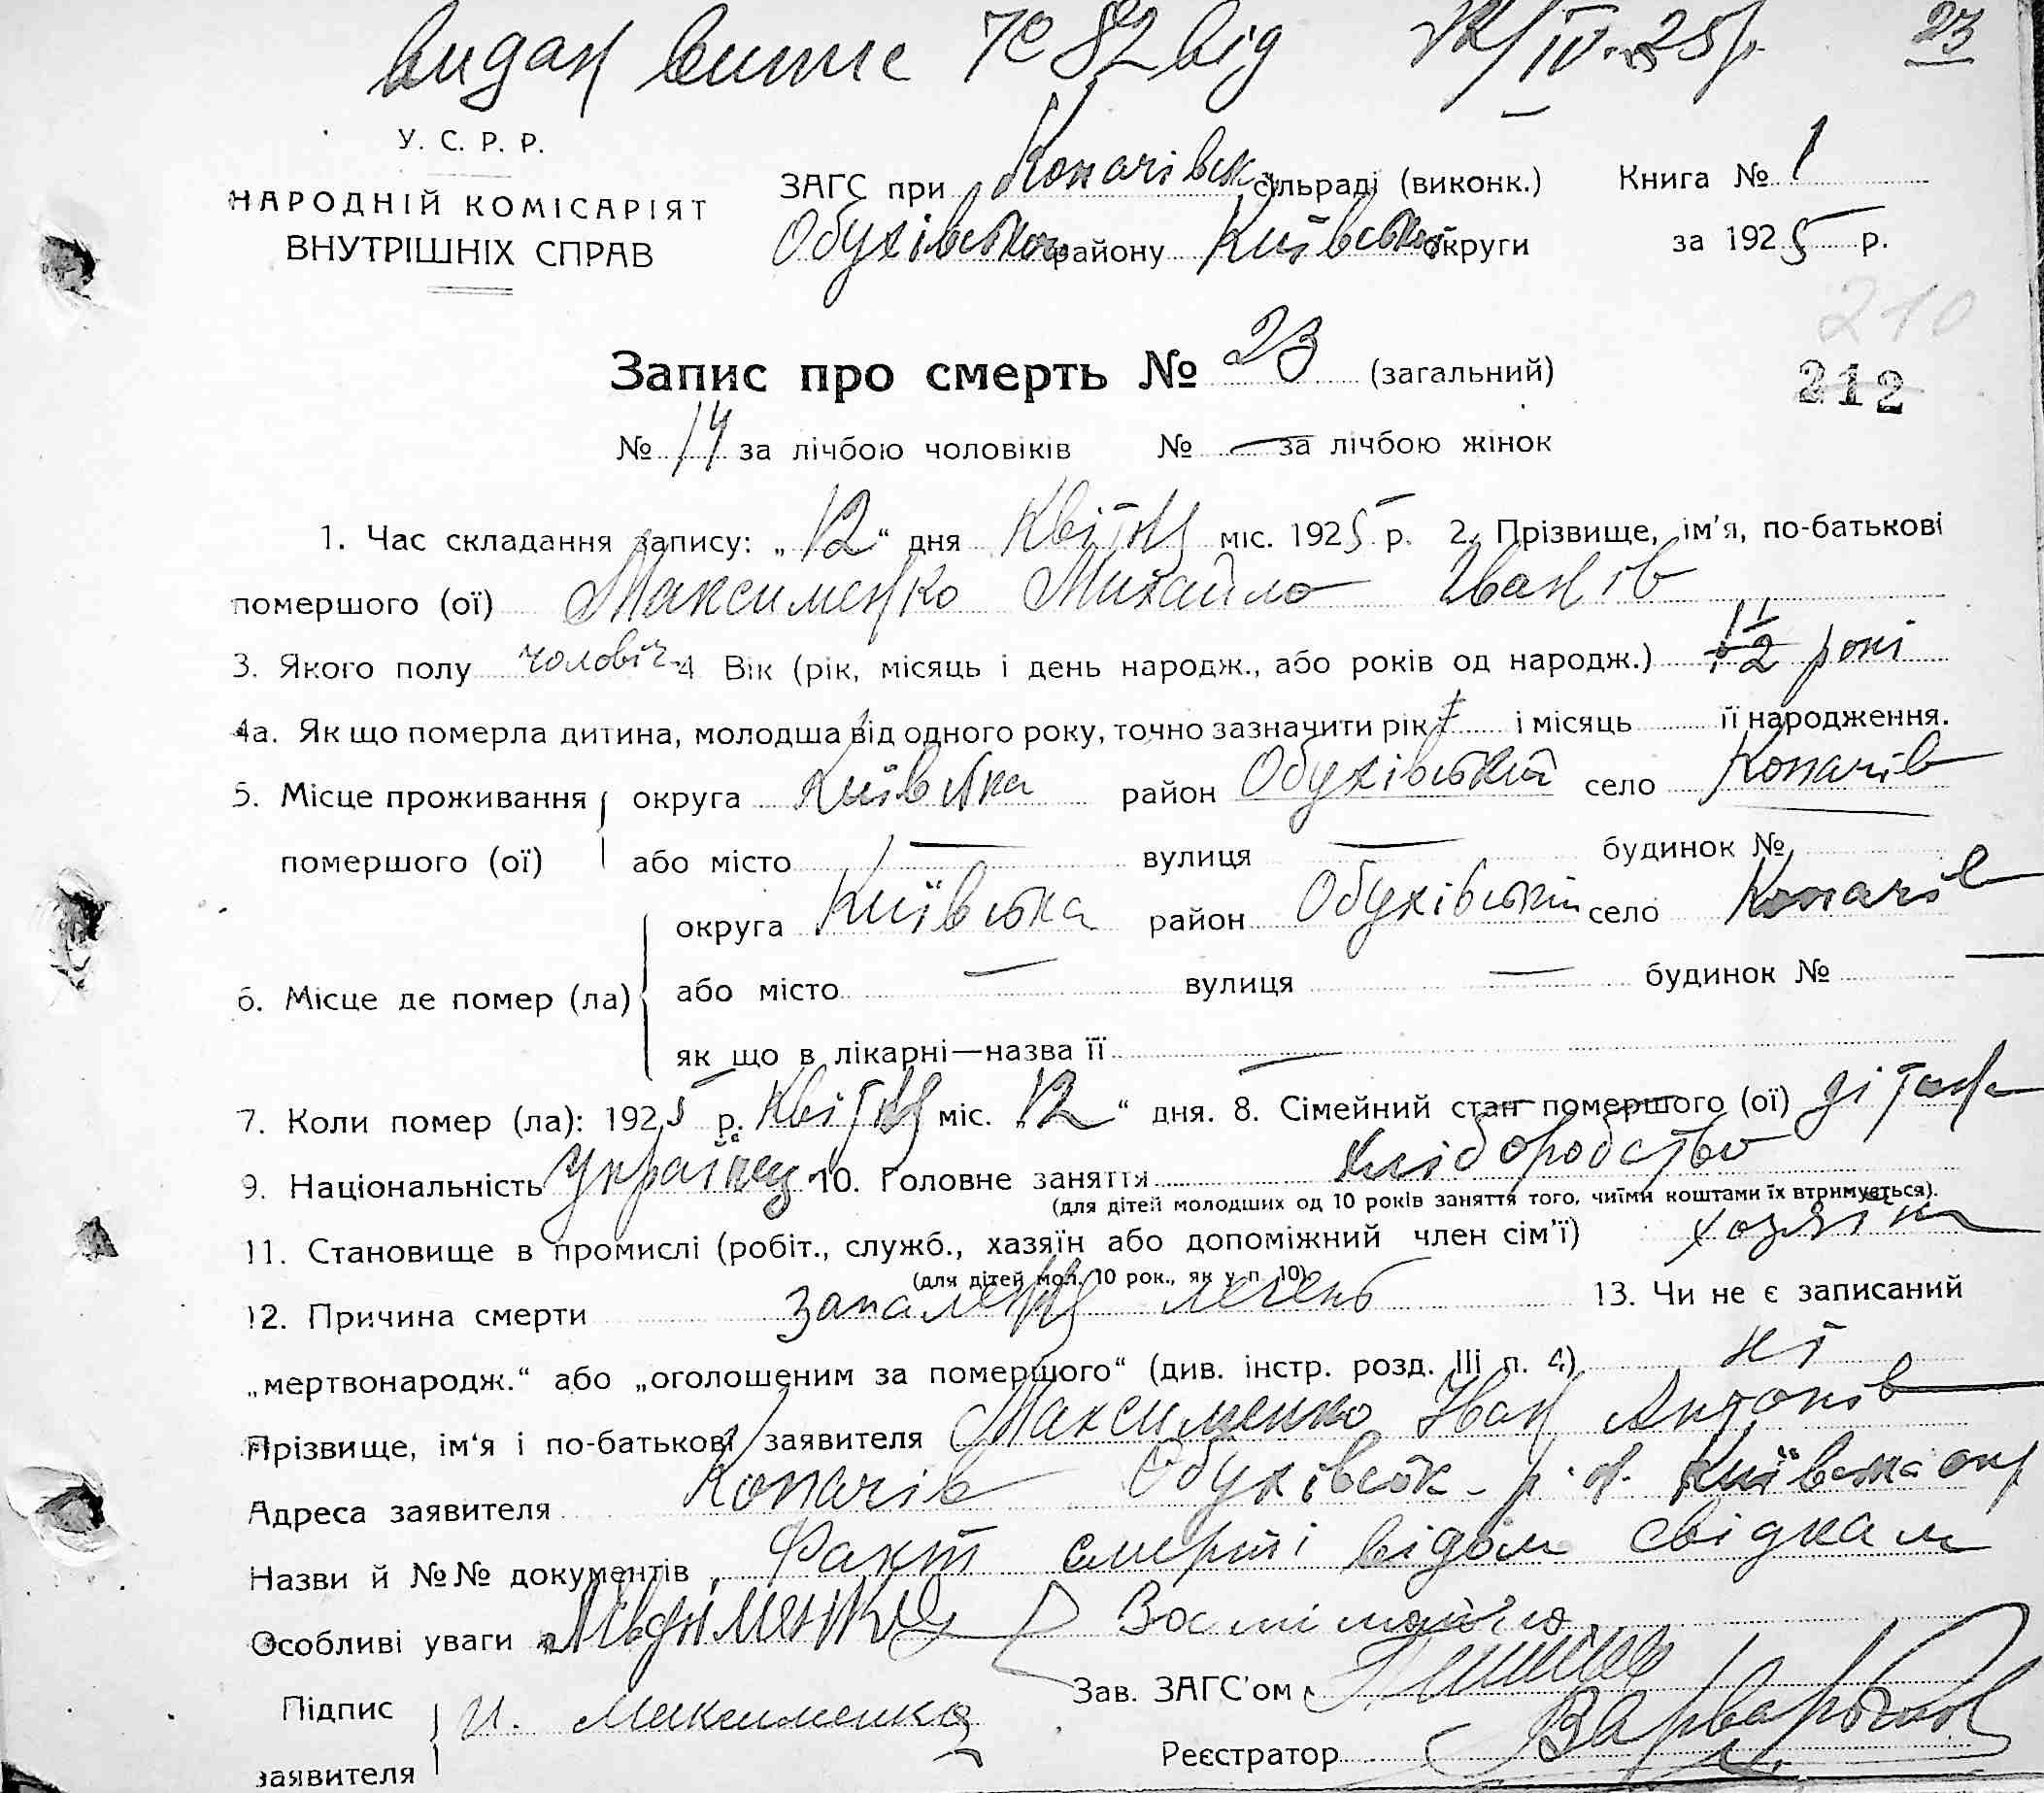 видан витяг № 82 від 12/IV-25 р. 23
У. С. Р. Р.
НАРОДНІЙ КОМІСАРІЯТ
ВНУТРІШНІХ СПРАВ
ЗАГС при Копачівск сільраді (виконк.) Книга № 1
Обухівського району Київської округи за 1925 р.
210
Запис про смерть № 23 (загальний)
212
№ 14 за лічбою чоловіків № — за лічбою жінок
1. Час складання запису: „12“ дня Квітня міс. 1925 р. 2. Прізвище, ім'я, по-батькові
помершого (ої) Максименко Михайло Іванів
3. Якого полу чоловіч. 4 Вік (рік, місяць і день народж., або років од народж.) 1 1/2 рокі
4а. Як що померла дитина, молодша від одного року, точно зазначити рік і місяць її народження.
5. Місце проживання округа Київська район Обухівський село Копачів
помершого (ої) або місто — вулиця — будинок №
округа Київська район Обухівський село Копачів
6. Місце де помер (ла) або місто — вулиця — будинок № —
як що в лікарні—назва її —
7. Коли помер (ла): 1925 р. Квітня міс. „12“ дня. 8. Сімейний стан помершого (ої) дітина
9. Національність Українец 10. Головне заняття хліборобство
(для дітей молодших од 10 років заняття того, чиїми коштами їх втримується).
11. Становище в промислі (робіт., служб., хазяїн або допоміжний член сім'ї) хозяін
(для дітей мол. 10 рок., як у п. 10)
12. Причина смерти запаленя легень 13. Чи не є записаний
„мертвонародж.“ або „оголошеним за помершого“ (див. інстр. розд. III п. 4) ні
Прізвище, ім'я і по-батькові заявителя Максименко Іван Антонів
Адреса заявителя Копачів Обухівськ. р.н. Київська окр
Назви й №№ документів Факт смерті відом свідкам
Особливі уваги
Підпис И. Максименко Зав. ЗАГС'ом
заявителя Реєстратор